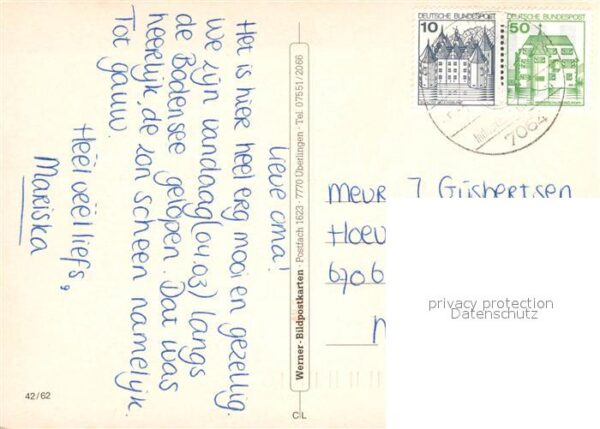 Lieve oma!
Het is hier heel erg mooi en gezellig.
We zijn vandaag (04.03) langs
de Bodensee gelopen. Dat was
heerlijk, de zon scheen namelijk.
Tot gauw.
Héél véél liefs,
Mariska
42/62
Werner-Bildpostkarten · Postfach 1623 · 7770 Überlingen · Tel. 07551/2066
C L
DEUTSCHE BUNDESPOST
10
DEUTSCHE BUNDESPOST
50
Mevr. J Gijsbertsen
privacy protection
Datenschutz